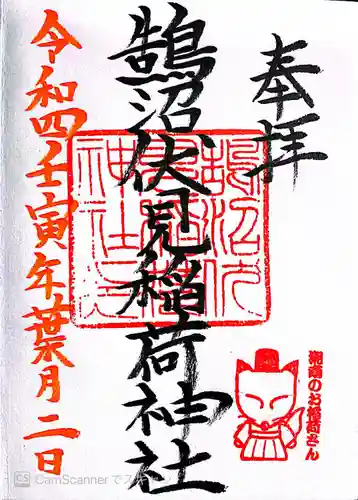 奉拝
鵠沼伏見稲荷神社
令和四壬寅年葉月二日
鵠沼伏
見稲荷
神社之
湘南のお稲荷さん
CS CamScanner でスキャン